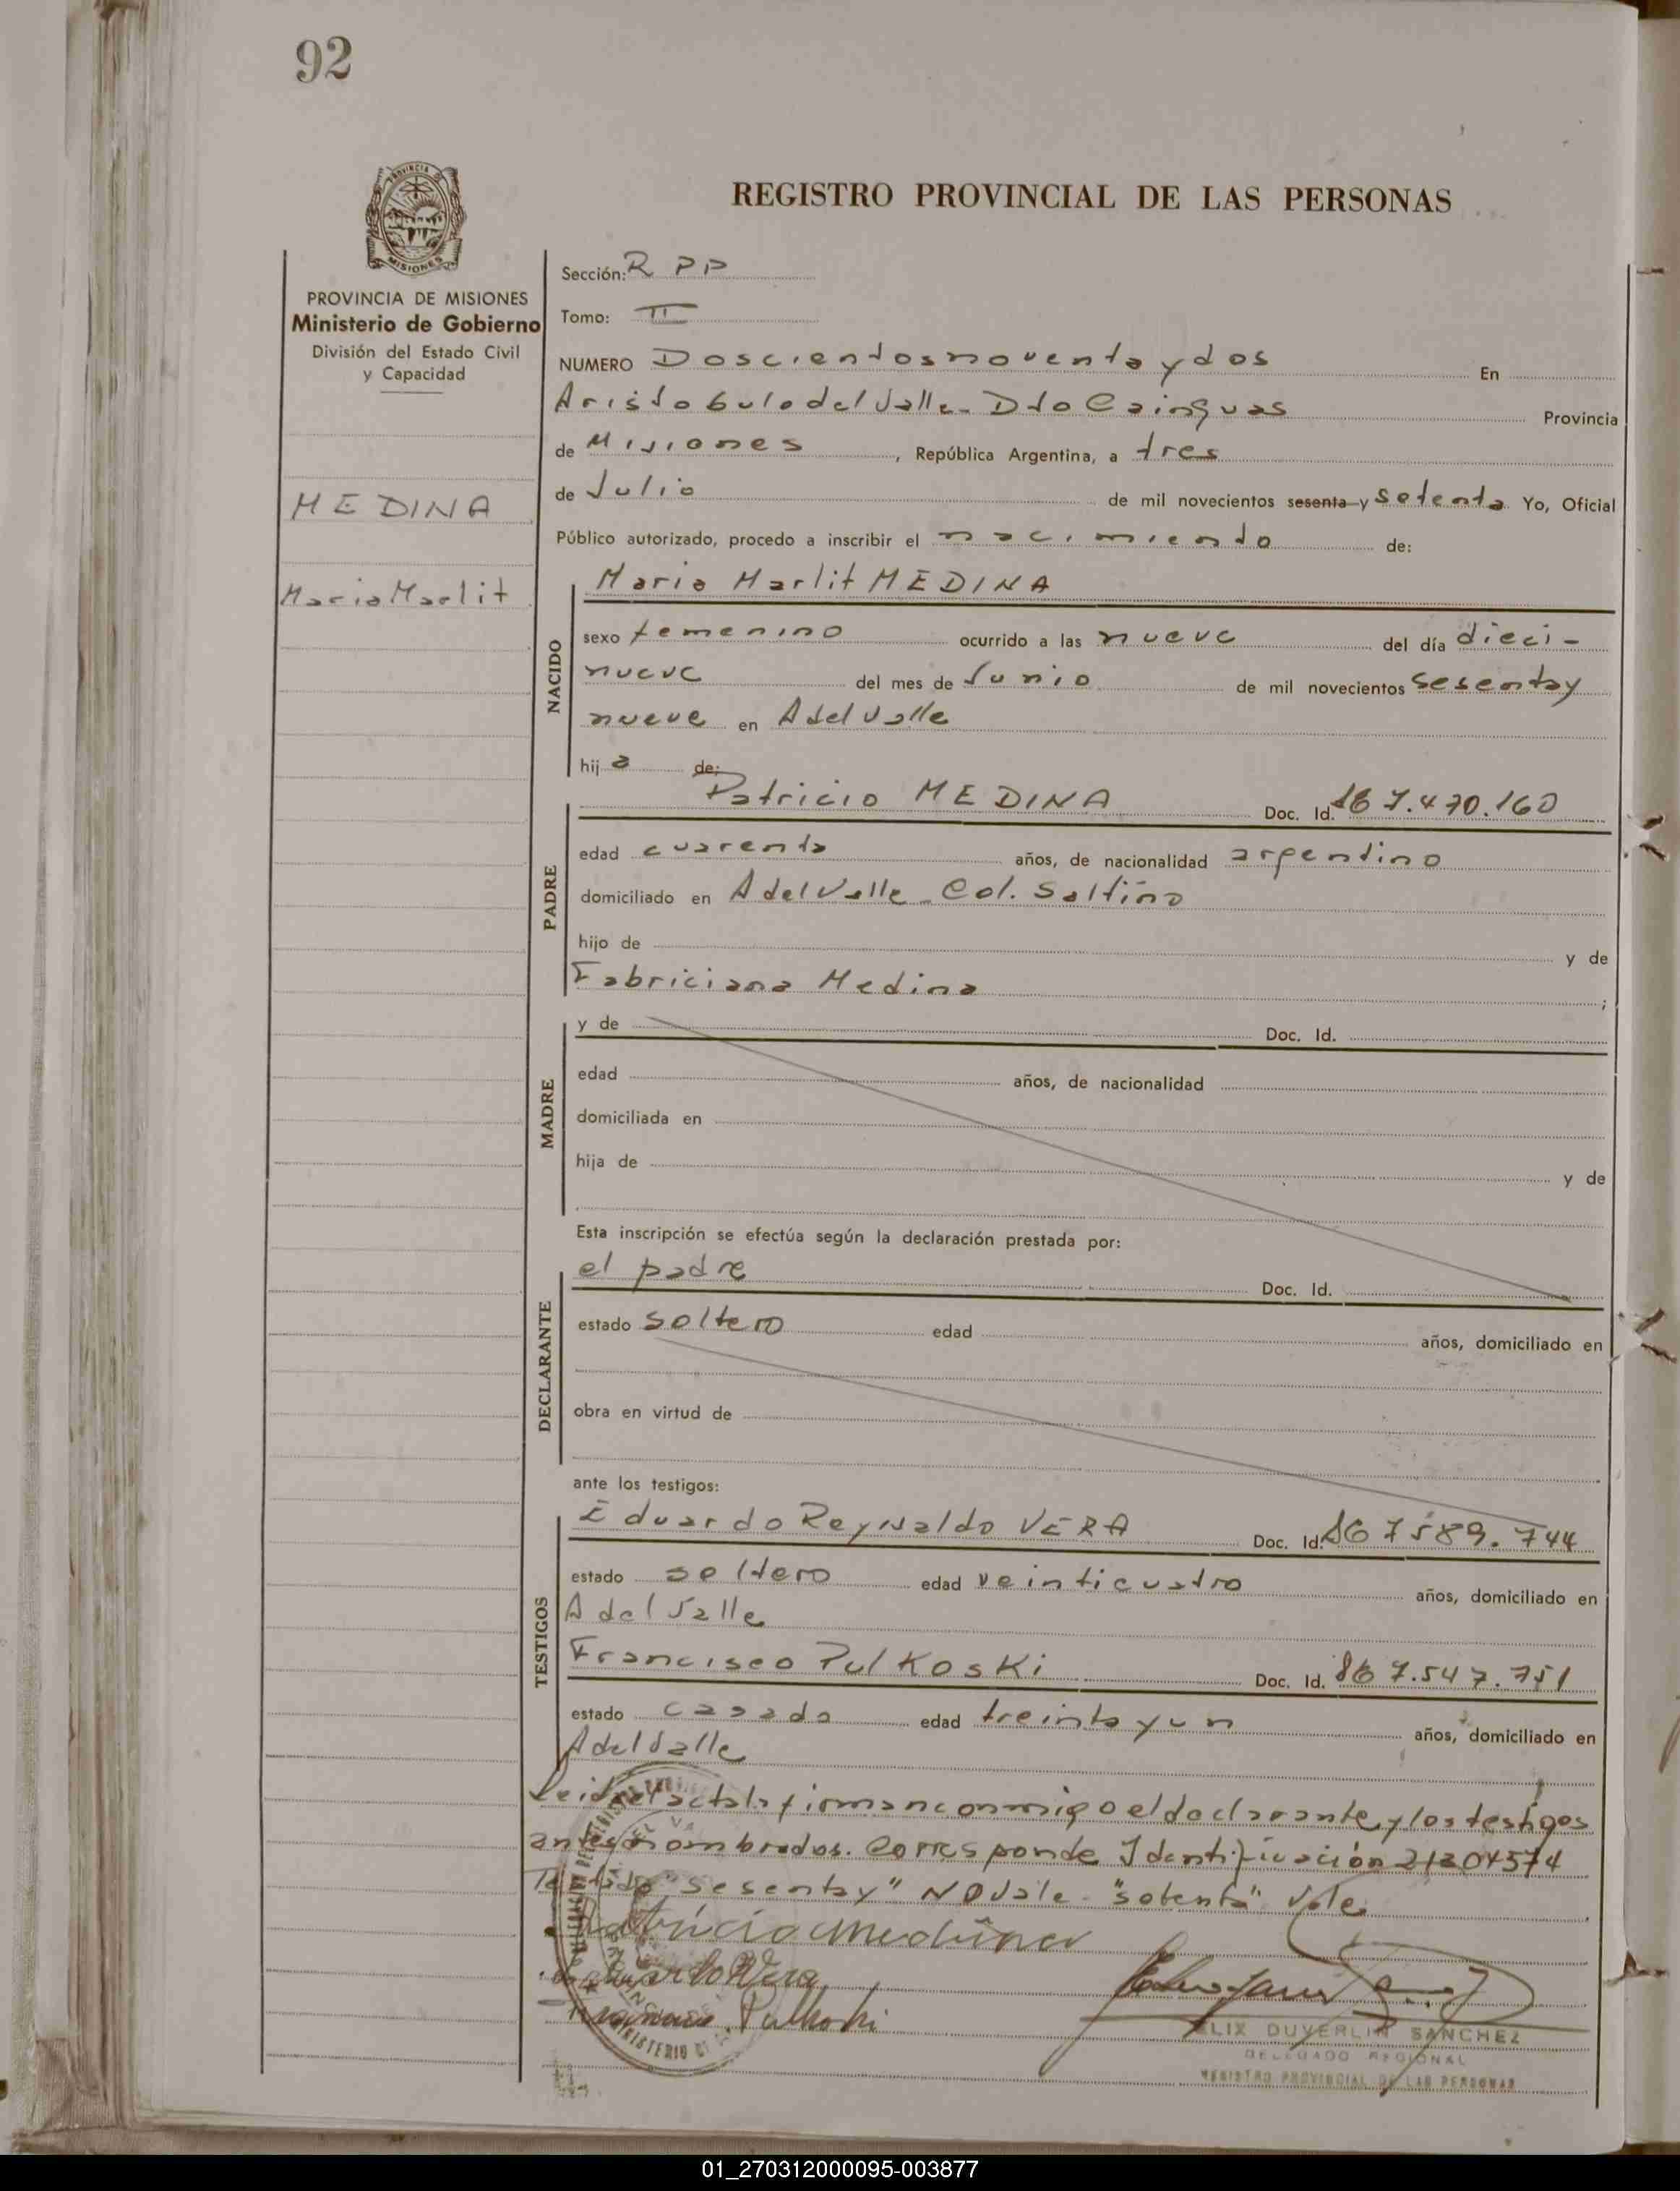 92
PROVINCIA DE
MISIONES
REGISTRO PROVINCIAL DE LAS PERSONAS
PROVINCIA DE MISIONES
Ministerio de Gobierno
División del Estado Civil
y Capacidad
MEDINA
Maria Marlit
Sección: R P P
Tomo: II
NUMERO Doscientos noventa y dos En
Aristobulo del Valle - Dto Cainguas Provincia
de Misiones, República Argentina, a tres
de Julio de mil novecientos sesenta y Setenta Yo, Oficial
Público autorizado, procedo a inscribir el nacimiento de:
Maria Marlit MEDINA
NACIDO
sexo femenino ocurrido a las nueve del día dieci-
nueve del mes de Junio de mil novecientos sesenta y
nueve en A del Valle
hij a de:
PADRE
Patricio MEDINA Doc. Id. 7.470.160
edad cuarenta años, de nacionalidad argentino
domiciliado en A del Valle - Col. Saltiño
hijo de y de
Fabriciana Medina ;
MADRE
y de Doc. Id.
edad años, de nacionalidad
domiciliada en
hija de y de
Esta inscripción se efectúa según la declaración prestada por:
DECLARANTE
el padre Doc. Id.
estado soltero edad años, domiciliado en
obra en virtud de
ante los testigos:
TESTIGOS
Eduardo Reynaldo VERA Doc. Id. 7589.744
estado soltero edad veinticuatro años, domiciliado en
A del Valle
Francisco Pulkoski Doc. Id. 7.547.751
estado casado edad treinta y un años, domiciliado en
A del Valle
Leida el acta la firman conmigo el declarante y los testigos
antes nombrados. Corresponde Identificación 21304574
Testado "sesenta y" NO vale - "setenta" Vale
Patricio Medina
Eduardo R Vera
Francisco Pulkoski
FELIX DUVERLIN SANCHEZ
DELEGADO REGIONAL
REGISTRO PROVINCIAL DE LAS PERSONAS
01_270312000095-003877